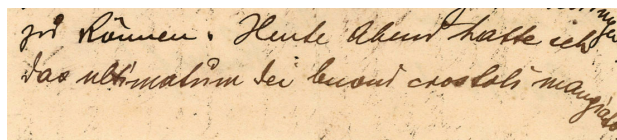 zu können. Heute Abend hatte ich
das ultimatum dei buoni crostoli mangiato